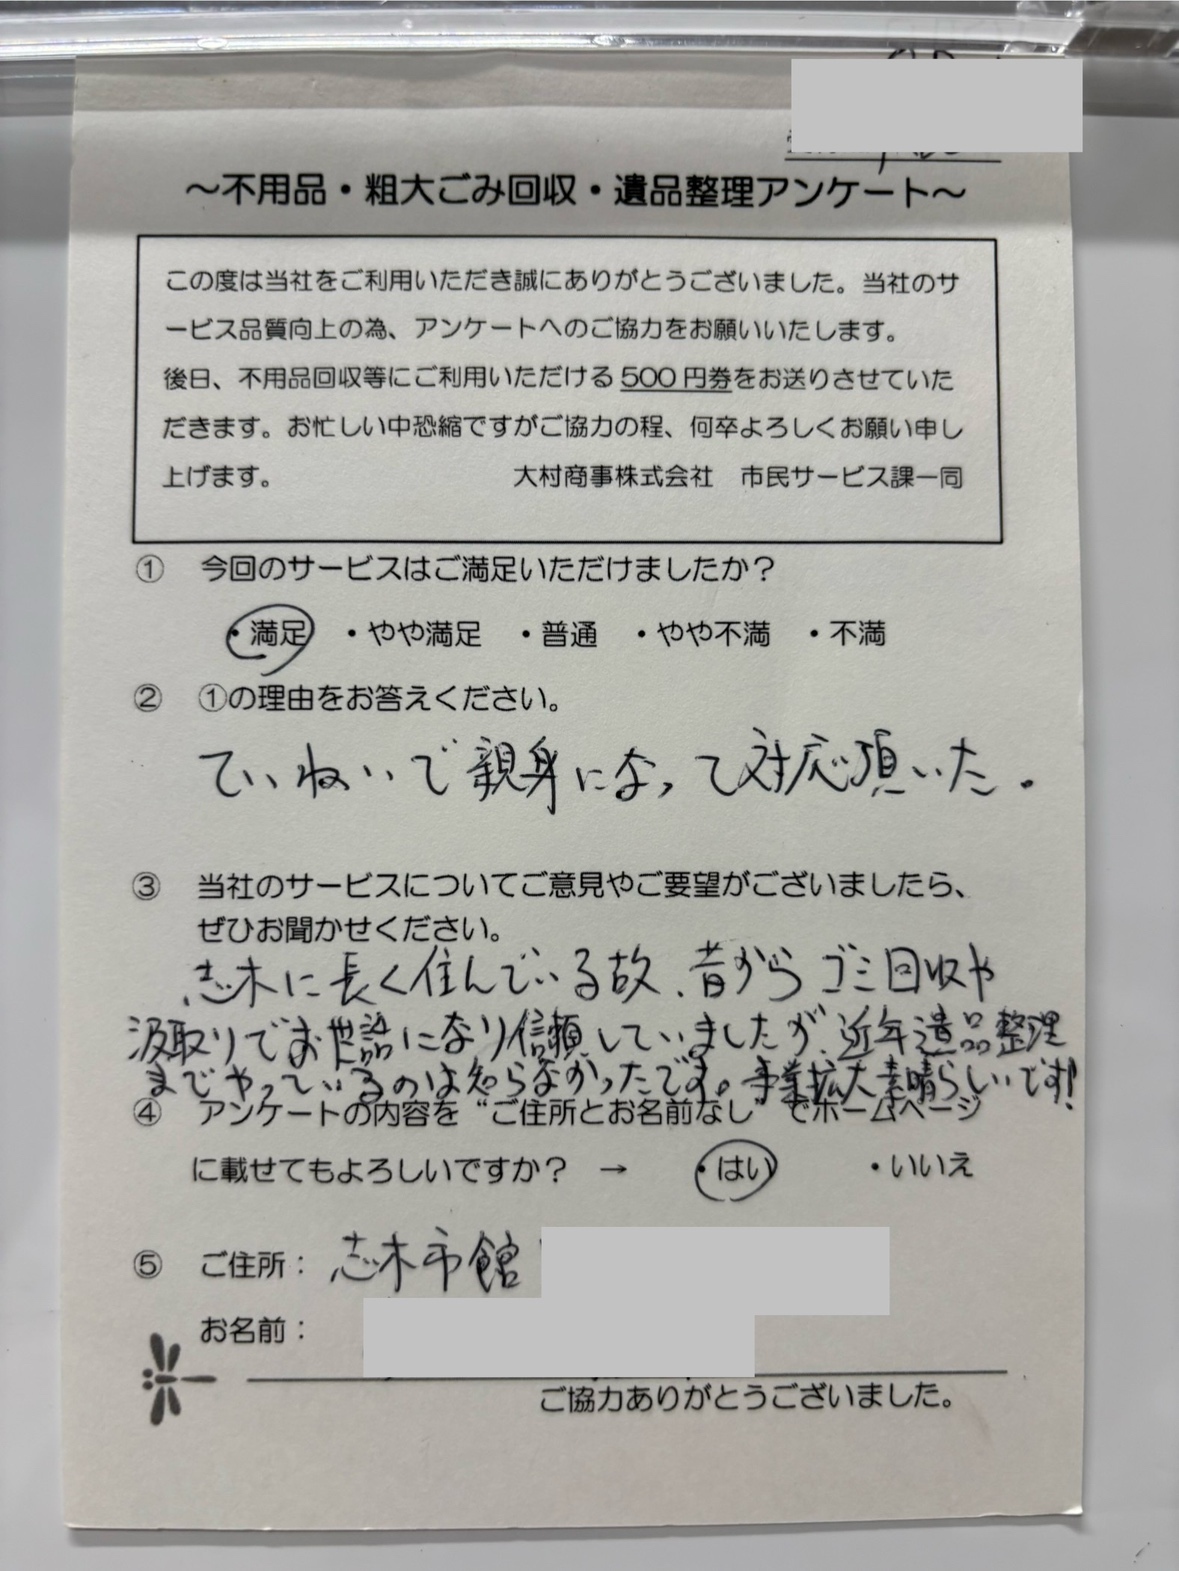 ～不用品・粗大ごみ回収・遺品整理アンケート～
この度は当社をご利用いただき誠にありがとうございました。当社のサ
ービス品質向上の為、アンケートへのご協力をお願いいたします。
後日、不用品回収等にご利用いただける500円券をお送りさせていた
だきます。お忙しい中恐縮ですがご協力の程、何卒よろしくお願い申し
上げます。 大村商事株式会社 市民サービス課一同
① 今回のサービスはご満足いただけましたか？
・満足 ・やや満足 ・普通 ・やや不満 ・不満
② ①の理由をお答えください。
ていねいで親身になって対応頂いた。
③ 当社のサービスについてご意見やご要望がございましたら、
ぜひお聞かせください。
志木に長く住んでいる故、昔からゴミ回収や
汲取りでお世話になり信頼していましたが、近年遺品整理
までやっているのは知らなかったです。事業拡大素晴らしいです!
④ アンケートの内容を“ご住所とお名前なし”でホームページ
に載せてもよろしいですか？ → ・はい ・いいえ
⑤ ご住所： 志木市館
お名前：
ご協力ありがとうございました。